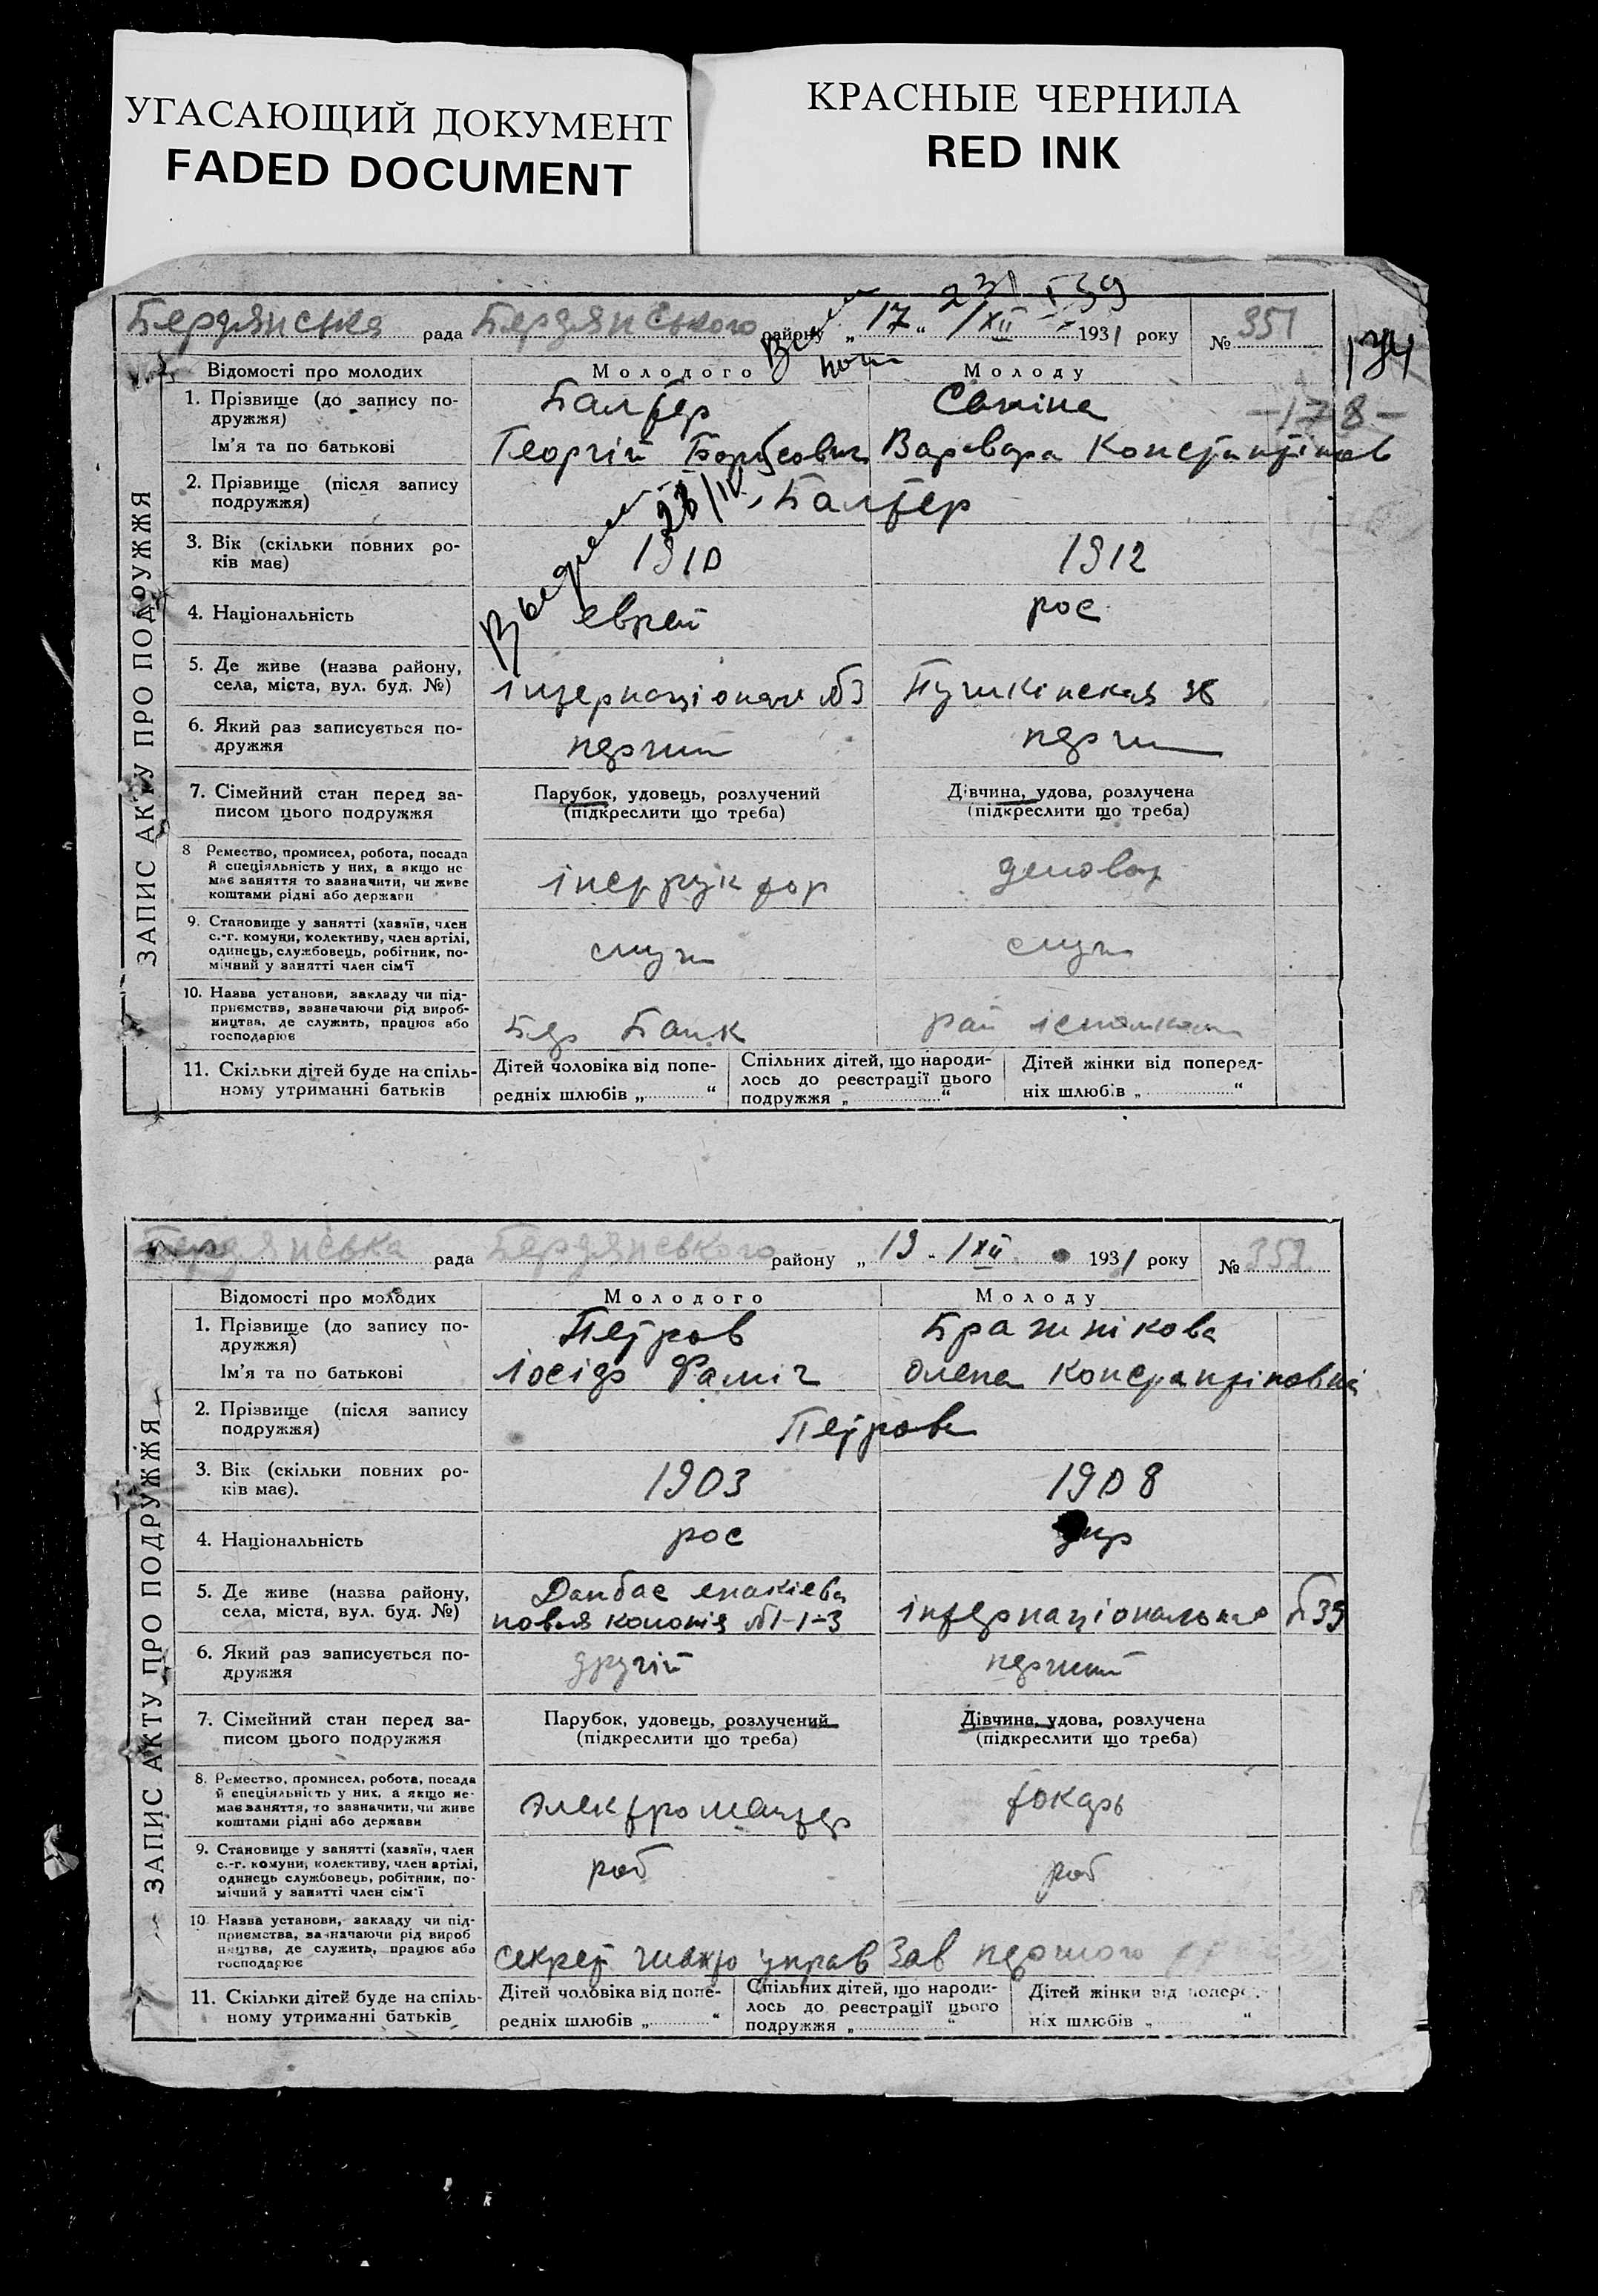 УГАСАЮЩИЙ ДОКУМЕНТ
FADED DOCUMENT
КРАСНЫЕ ЧЕРНИЛА
RED INK
Бердянська рада Бердянського району „17“ /XII 1931 року № 351
174
-178-
ЗАПИС АКТУ ПРО ПОДРУЖЖЯ
Відомості про молодих Молодого Молоду
1. Прізвище (до запису по-
дружжя) Балтер
Ім'я та по батькові Георгій Борисович Варвара Константінов
2. Прізвище (після запису
подружжя) Балтер
28/IV
3. Вік (скільки повних ро-
ків має) 1910 1912
4. Національність еврей рос
5. Де живе (назва району,
села, міста, вул. буд. №) Пушкінская 38
6. Який раз записується по-
дружжя перший перш
7. Сімейний стан перед за-
писом цього подружжя
Парубок, удовець, розлучений
(підкреслити що треба)
Дівчина, удова, розлучена
(підкреслити що треба)
8 Ремество, промисел, робота, посада
й спеціяльність у них, а якщо не
має заняття то зазначити, чи живе
коштами рідні або держави
інструктор діловод
9. Становище у занятті (хазяїн, член
с.-г. комуни, колективу, член артілі,
одинець, службовець, робітник, по-
мічний у занятті член сім'ї
служ служ
10. Назва установи, закладу чи під-
приємства, зазначаючи рід вироб-
ництва, де служить, працює або
господарює
Банк рай
11. Скільки дітей буде на спіль-
ному утриманні батьків
Дітей чоловіка від попе-
редніх шлюбів „ “
Спільних дітей, що народи-
лось до реєстрації цього
подружжя „ “
Дітей жінки від поперед-
ніх шлюбів „ “
Бердянська рада Бердянського району „19 /XII 1931 року №
ЗАПИС АКТУ ПРО ПОДРУЖЖЯ
Відомості про молодих Молодого Молоду
1. Прізвище (до запису по-
дружжя) Петров Бражнікова
Ім'я та по батькові Олена Константіновна
2. Прізвище (після запису
подружжя) Петров
3. Вік (скільки повних ро-
ків має). 1903 1908
4. Національність рос укр
5. Де живе (назва району,
села, міста, вул. буд. №)
Донбас
новая колонія №1-1-3
6. Який раз записується по-
дружжя другій перший
7. Сімейний стан перед за-
писом цього подружжя
Парубок, удовець, розлучений
(підкреслити що треба)
Дівчина, удова, розлучена
(підкреслити що треба)
8. Ремество, промисел, робота, посада
й спеціяльність у них, а якщо не-
має заняття, то зазначити, чи живе
коштами рідні або держави
электромонтер токарь
9. Становище у занятті (хазяїн, член
с.-г. комуни, колективу, член артілі,
одинець службовець, робітник, по-
мічний у занятті член сім'ї
роб роб
10 Назва установи, закладу чи під-
приємства, зазначаючи рід вироб
ництва, де служить, працює або
господарює
управ Зав першого
11. Скільки дітей буде на спіль-
ному утриманні батьків
Дітей чоловіка від попе-
редніх шлюбів „ “
Спільних дітей, що народи-
лось до реєстрації цього
подружжя „ “
Дітей жінки від попере
ніх шлюбів „ “